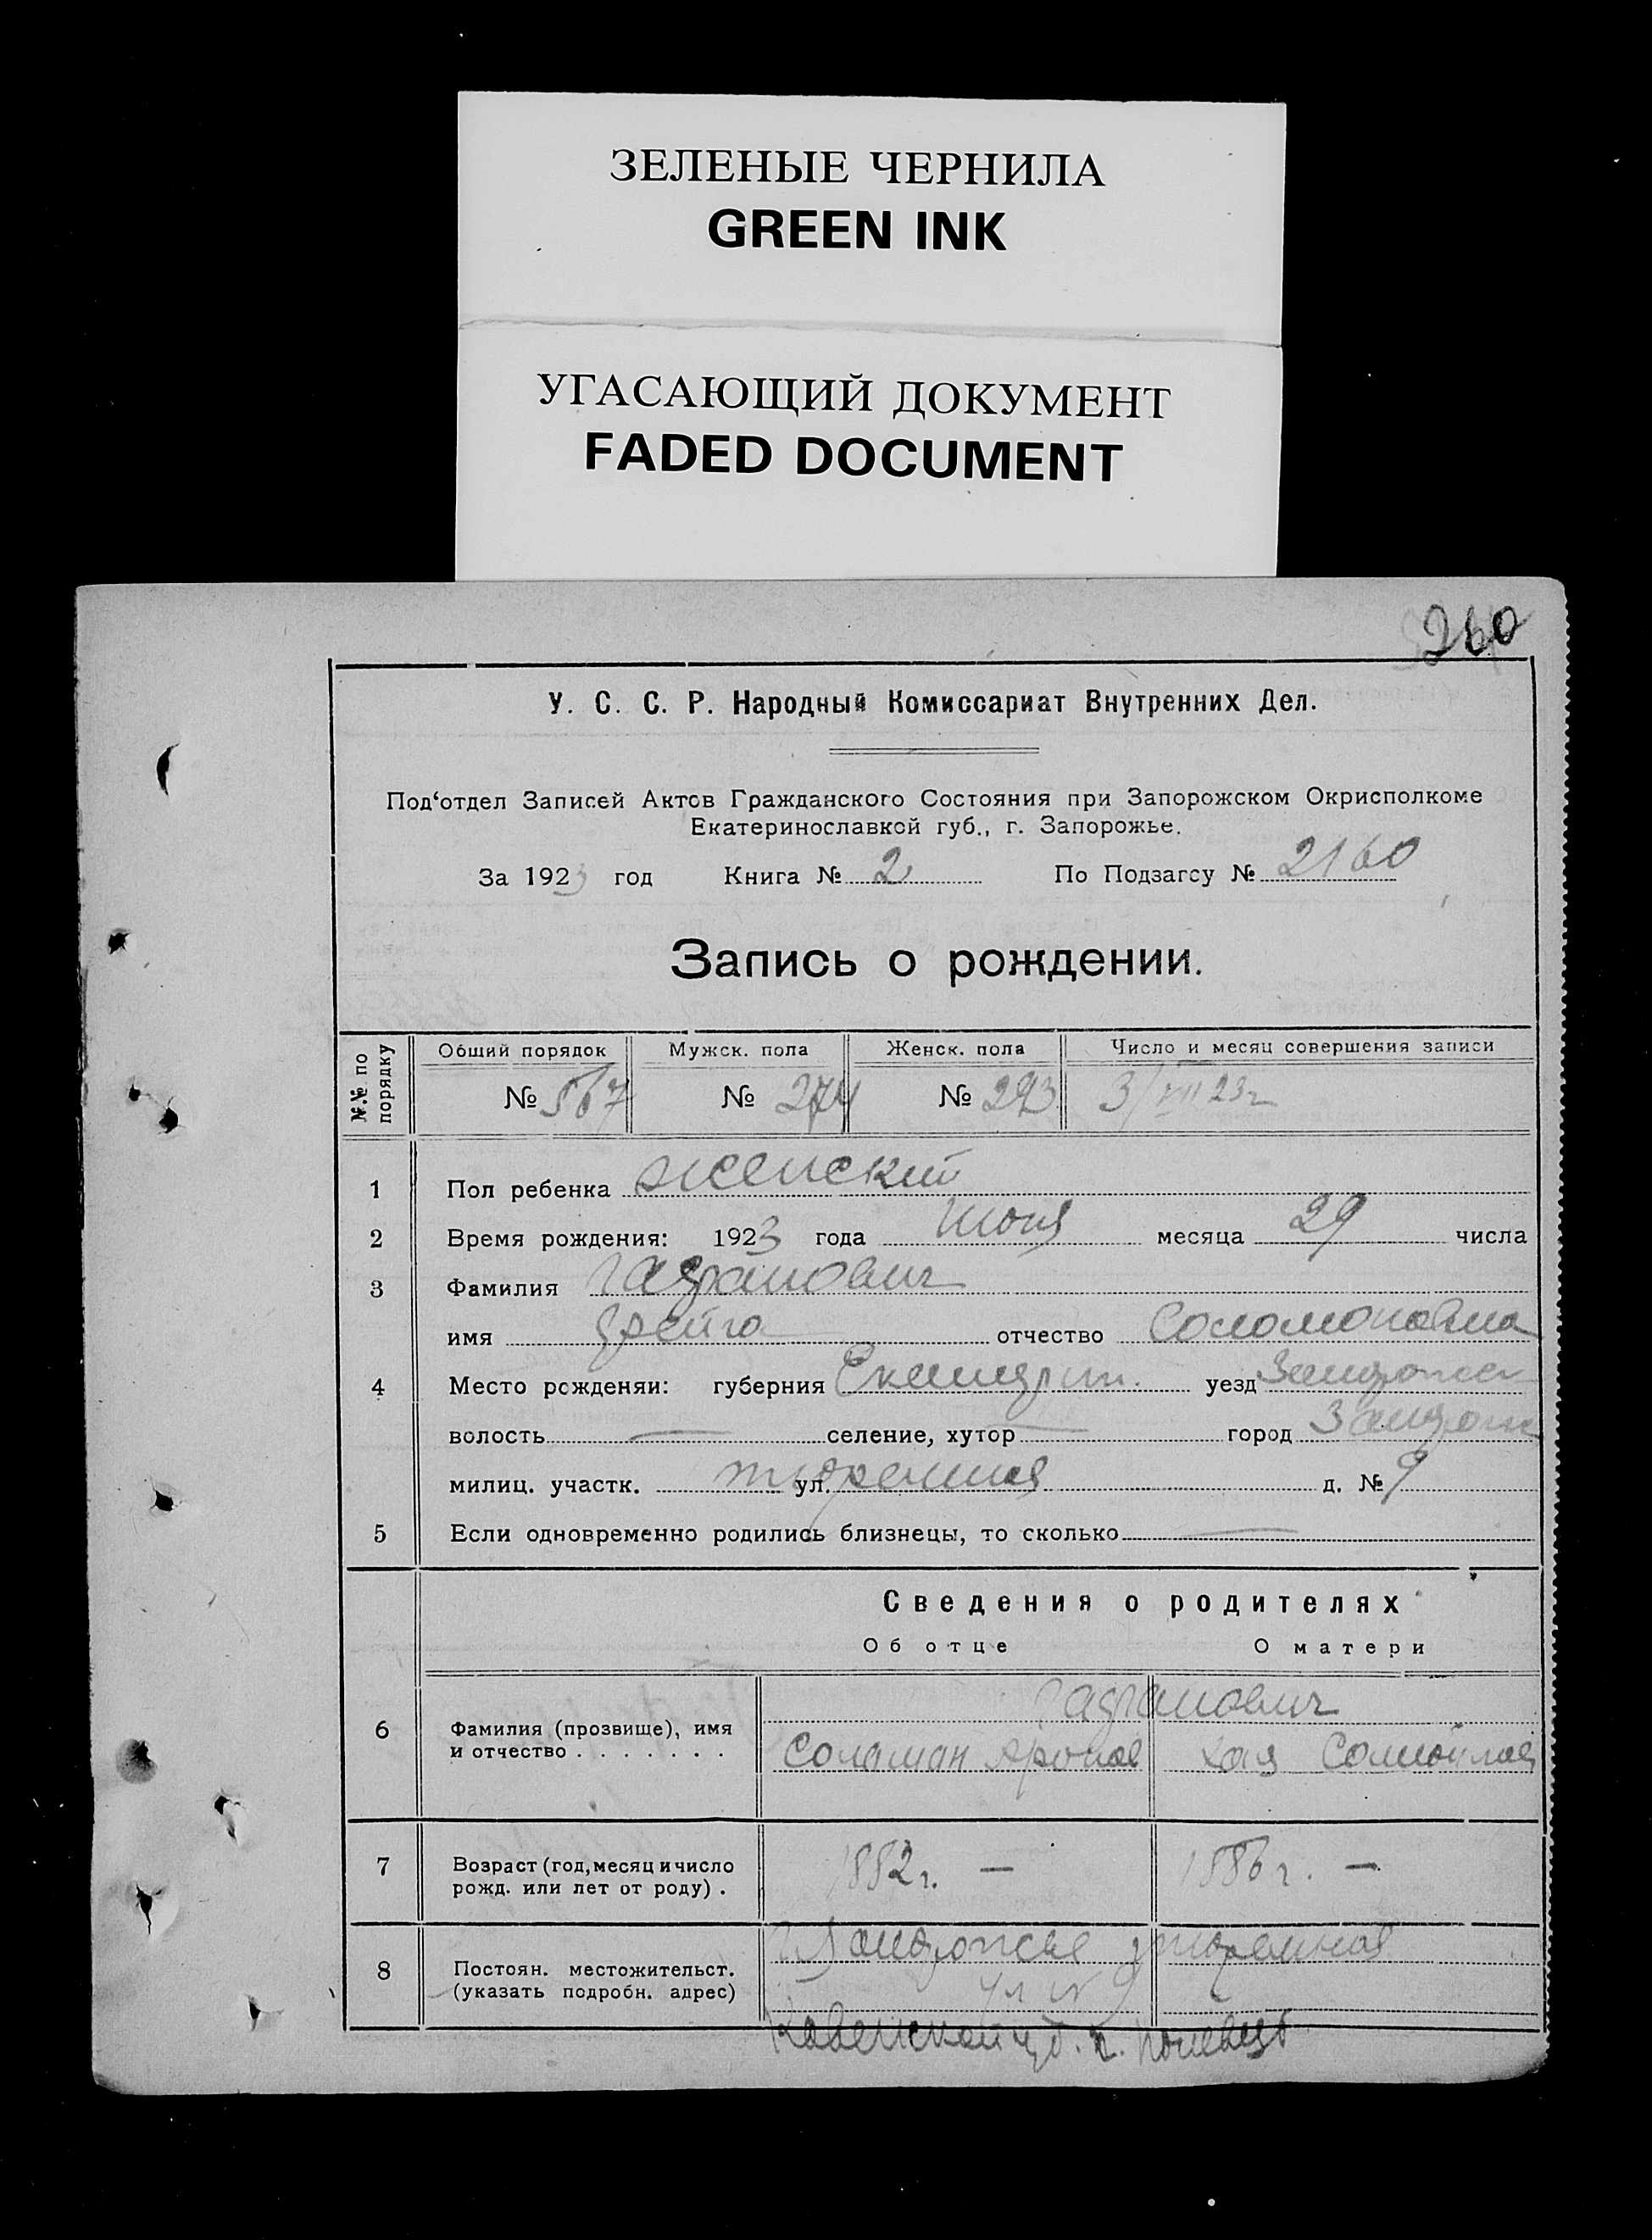 ЗЕЛЕНЫЕ ЧЕРНИЛА
GREEN INK
УГАСАЮЩИЙ ДОКУМЕНТ
FADED DOCUMENT
260
У. С. С. Р. Народный Комиссариат Внутренних Дел.
Под‘отдел Записей Актов Гражданского Состояния при Запорожском Окрисполкоме
Екатеринославкой губ., г. Запорожье.
За 1923 год Книга № 2 По Подзагсу № 2160
Запись о рождении.
№№ по порядку Общий порядок Мужск. пола Женск. пола Число и месяц совершения записи
№ 567 № 274 № 293 3/VII 23г
1 Пол ребенка женский
2 Время рождения: 1923 года июня месяца 29 числа
3 Фамилия
имя отчество Соломоновна
4 Место рожденяи: губерния уезд
волость — селение, хутор — город
милиц. участк. ул. д. № 9
5 Если одновременно родились близнецы, то сколько —
Сведения о родителях
Об отце О матери
6 Фамилия (прозвище), имя
и отчество . . . . . . . Соломан Аронов Хая
7 Возраст (год, месяц и число 1882г. — 1886г. —
рожд. или лет от роду) .
8 Постоян. местожительст. Запорожье
(указать подробн. адрес) ул № 9